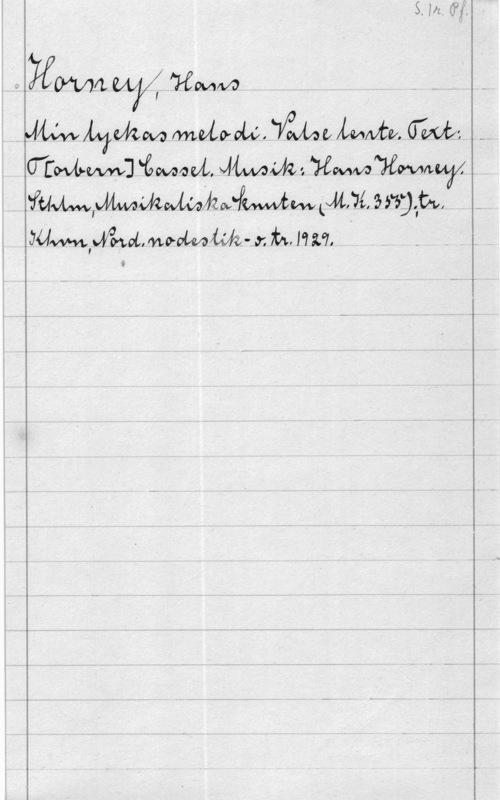 S. 1 r. Pf.
Horney, Hans
Min lyckas melodi. Valse lente. Text:
T[orbern] Cassel. Musik: Hans Horney.
Sthlm, Musikaliska knuten (M.K. 355); tr.
Khvn, Nord. nodestik- o. tr. 1929.